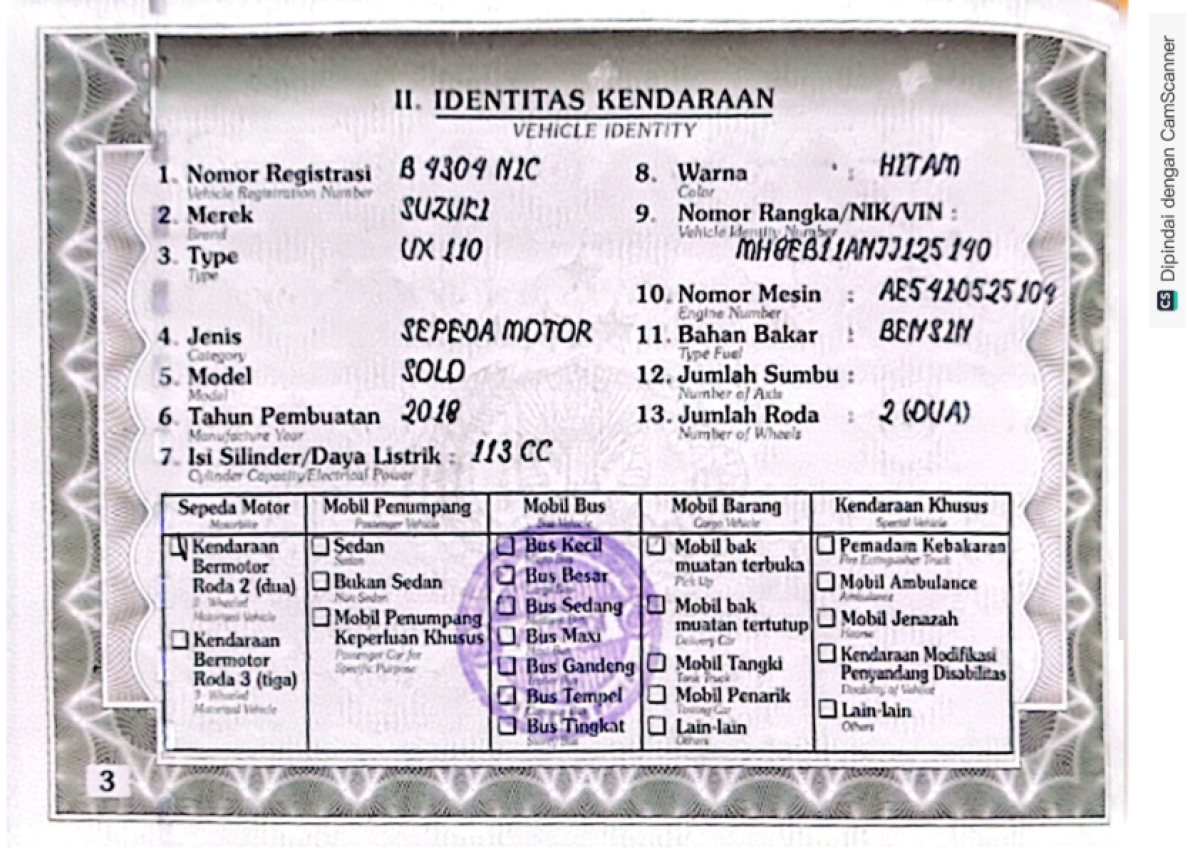 II. IDENTITAS KENDARAAN
VEHICLE IDENTITY
1. Nomor Registrasi B 4304 NIC
Vehicle Registration Number
2. Merek SUZUKI
Brand
3. Type UX 110
Type
4. Jenis SEPEDA MOTOR
Category
5. Model SOLO
Model
6. Tahun Pembuatan 2018
Manufacture Year
7. Isi Silinder/Daya Listrik : 113 CC
Cylinder Capacity/Electrical Power
8. Warna : HITAM
Color
9. Nomor Rangka/NIK/VIN :
Vehicle Identity Number
MH8EB11ANJJ125140
10. Nomor Mesin : AE5420525104
Engine Number
11. Bahan Bakar : BENSIN
Type Fuel
12. Jumlah Sumbu :
Number of Axis
13. Jumlah Roda : 2 (DUA)
Number of Wheels
Sepeda Motor
Motorbike
Kendaraan
Bermotor
Roda 2 (dua)
2 Wheeled
Motorized Vehicle
Kendaraan
Bermotor
Roda 3 (tiga)
3 Wheeled
Motorized Vehicle
Mobil Penumpang
Passenger Vehicle
Sedan
Sedan
Bukan Sedan
Non Sedan
Mobil Penumpang
Keperluan Khusus
Passenger Car for
Specific Purpose
Mobil Bus
Bus Vehicle
Bus Kecil
Bus Besar
Bus Sedang
Bus Maxi
Bus Gandeng
Bus Tempel
Bus Tingkat
Mobil Barang
Cargo Vehicle
Mobil bak
muatan terbuka
Pick Up
Mobil bak
muatan tertutup
Delivery Car
Mobil Tangki
Tank Truck
Mobil Penarik
Towing Car
Lain-lain
Others
Kendaraan Khusus
Special Vehicle
Pemadam Kebakaran
Fire Extinguisher Truck
Mobil Ambulance
Ambulance
Mobil Jenazah
Hearse
Kendaraan Modifikasi
Penyandang Disabilitas
Disability of Vehicle
Lain-lain
Others
3
CS Dipindai dengan CamScanner